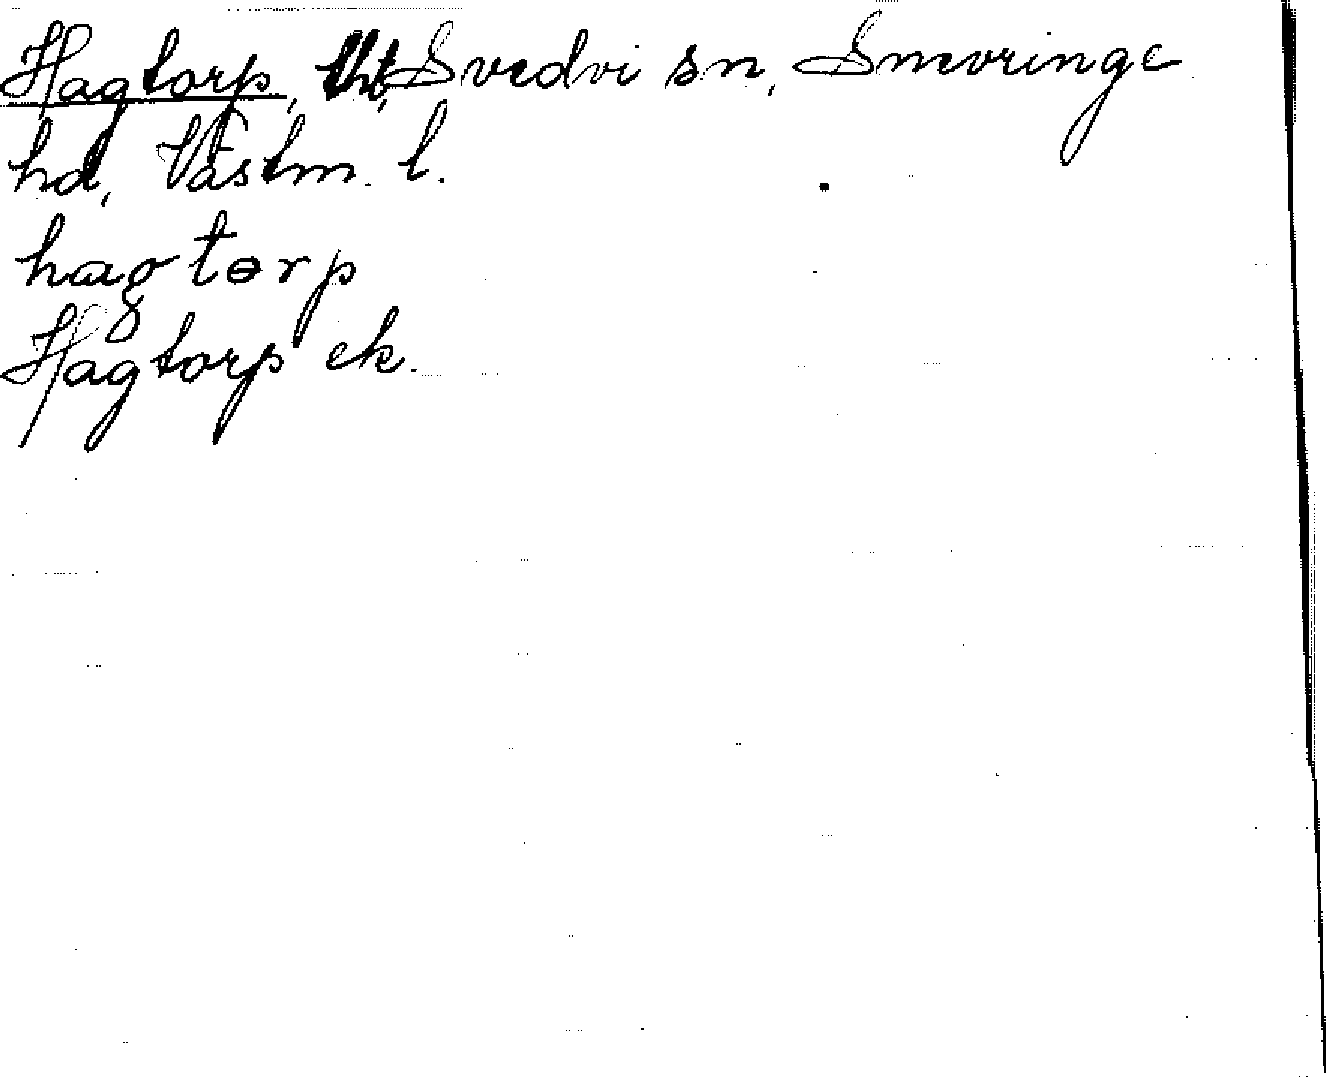 Hagtorp, lht, Svedvi sn, Snevringe
hd, Västm. l.
hagtərp
Hagtorp ek.